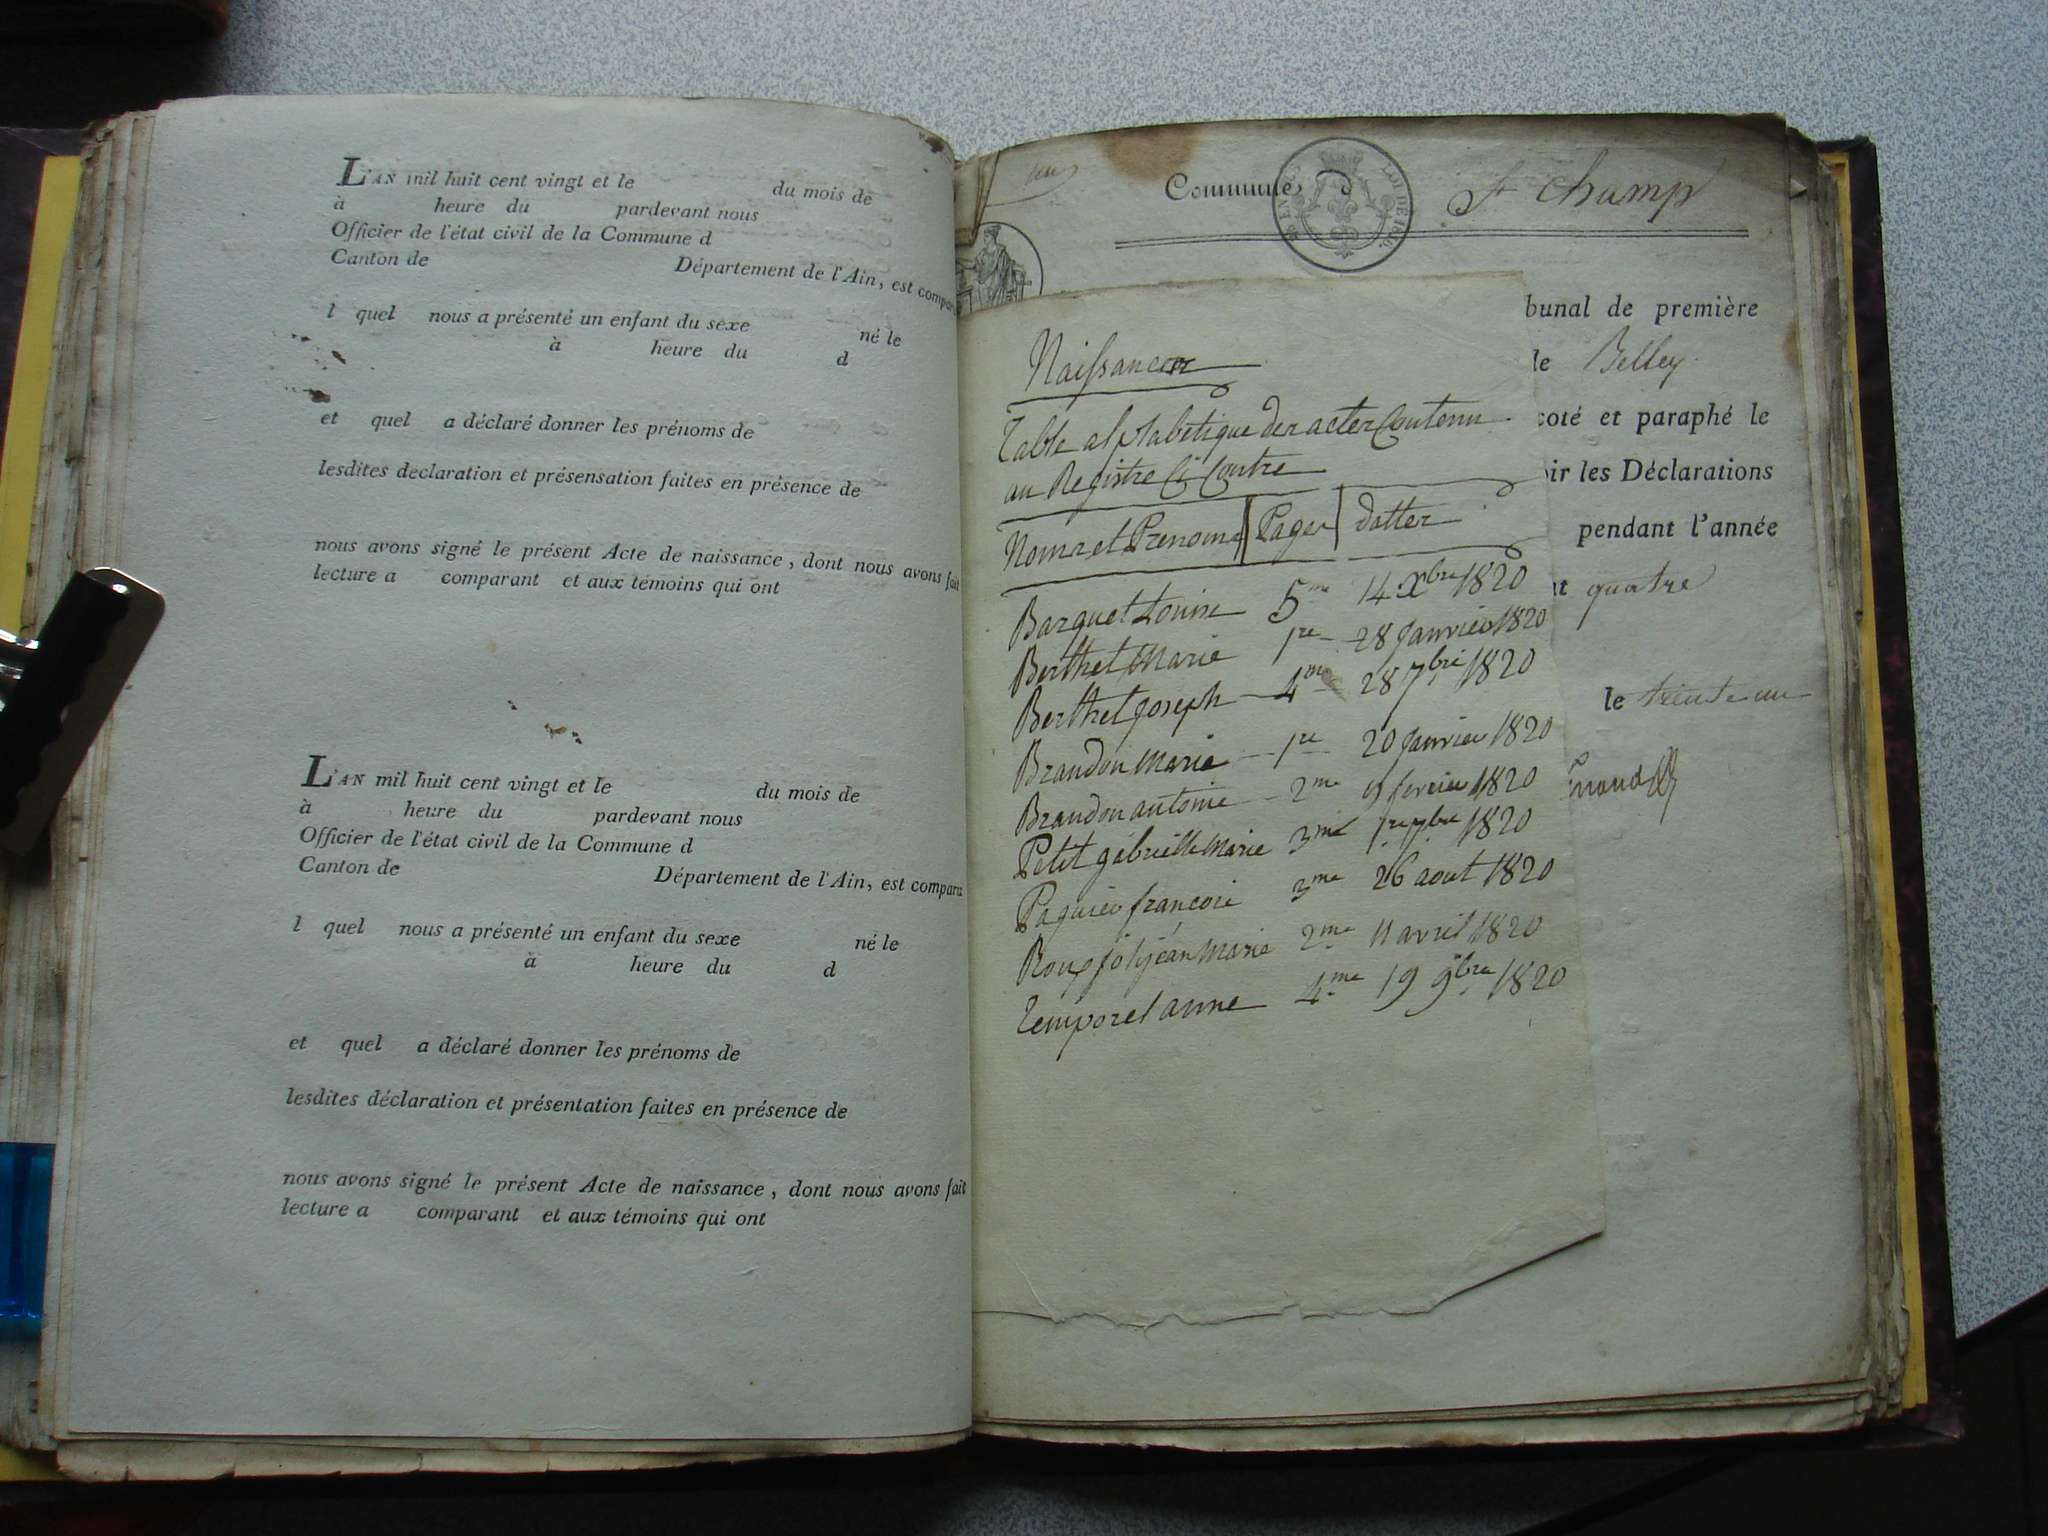 L'AN mil huit cent vingt et le du mois de
à heure du pardevant nous
Officier de l'état civil de la Commune d
Canton de Département de l'Ain, est compar
l quel nous a présenté un enfant du sexe né le
à heure du d
et quel a déclaré donner les prénoms de
lesdites declaration et présensation faites en présence de
nous avons signé le présent Acte de naissance, dont nous avons fait
lecture a comparant et aux témoins qui ont
L'AN mil huit cent vingt et le du mois de
à heure du pardevant nous
Officier de l'état civil de la Commune d
Canton de Département de l'Ain, est comparu
l quel nous a présenté un enfant du sexe né le
à heure du d
et quel a déclaré donner les prénoms de
lesdites déclaration et présentation faites en présence de
nous avons signé le présent Acte de naissance, dont nous avons fait
lecture a comparant et aux témoins qui ont
Commune D St champ
LOI DE 1816
bunal de première
de Belley.
coté et paraphé le
oir les Déclarations
pendant l'année
nt quatre
le trente un
Naissances
Table alphabetique des actes Contenu
au Registre Ci Contre
Noms et Prenoms Pages dattes
Barquet Louise 5me 14 Xbre 1820
Berthet Marie 1re 28 Janvier 1820
Berthet joseph 4me 28 7bre 1820
Brandon Marie 1re 20 Janvier 1820
Brandon antoine 2me fevrier 1820
Petit gabrielle Marie 3me 1er 7bre 1820
Paquier françois 3me 26 aout 1820
Roux joly jean Marie 2me 11 avril 1820
Temporel anne 4me 19 9bre 1820